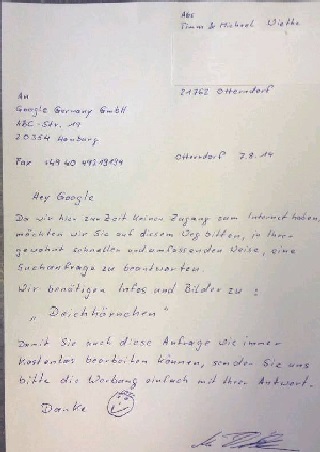 Abs
Timm & Michael Wiefke
21762 Otterndorf
An
Google Germany GmbH
ABC-Str. 19
20354 Hamburg
Fax +49 40 49219194
Otterndorf 7.8.14
Hey Google
Da wir hier zur Zeit keinen Zugang zum Internet haben,
möchten wir Sie auf diesem Weg bitten, in Ihrer
gewohnt schnellen und umfassenden Weise, eine
Suchanfrage zu beantworten.
Wir benötigen Infos und Bilder zu:
„Deichhörnchen"
Damit Sie auch diese Anfrage wie immer
kostenlos bearbeiten können, senden Sie uns
bitte die Werbung einfach mit Ihrer Antwort.
Danke